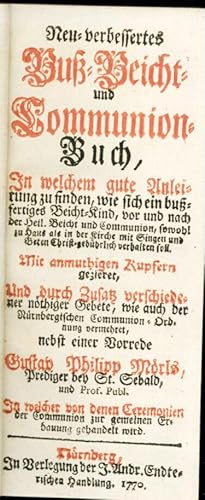 Neu-verbessertes
Buß-Beicht-
und
Communion-
Buch,
In welchem gute Anlei-
tung zu finden, wie sich ein buß-
fertiges Beicht-Kind, vor und nach
der Heil. Beicht und Communion, sowohl
zu Haus als in der Kirche mit Singen und
Beten Christ-gebührlich verhalten soll.
Mit anmuthigen Kupfern
gezieret,
Und durch Zusatz verschiede-
ner nöthiger Gebete, wie auch der
Nürnbergischen Communion-Ord-
nung vermehret,
nebst einer Vorrede
Gustav Philipp Mörls,
Prediger bey St. Sebald,
und Prof. Publ.
In welcher von denen Ceremonien
der Communion zur gemeinen Er-
bauung gehandelt wird.
Nürnberg,
In Verlegung der J. Andr. Endte-
rischen Handlung, 1770.